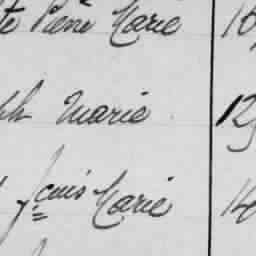 te Pierre Marie 16
ph Marie 12
fçois Marie 14